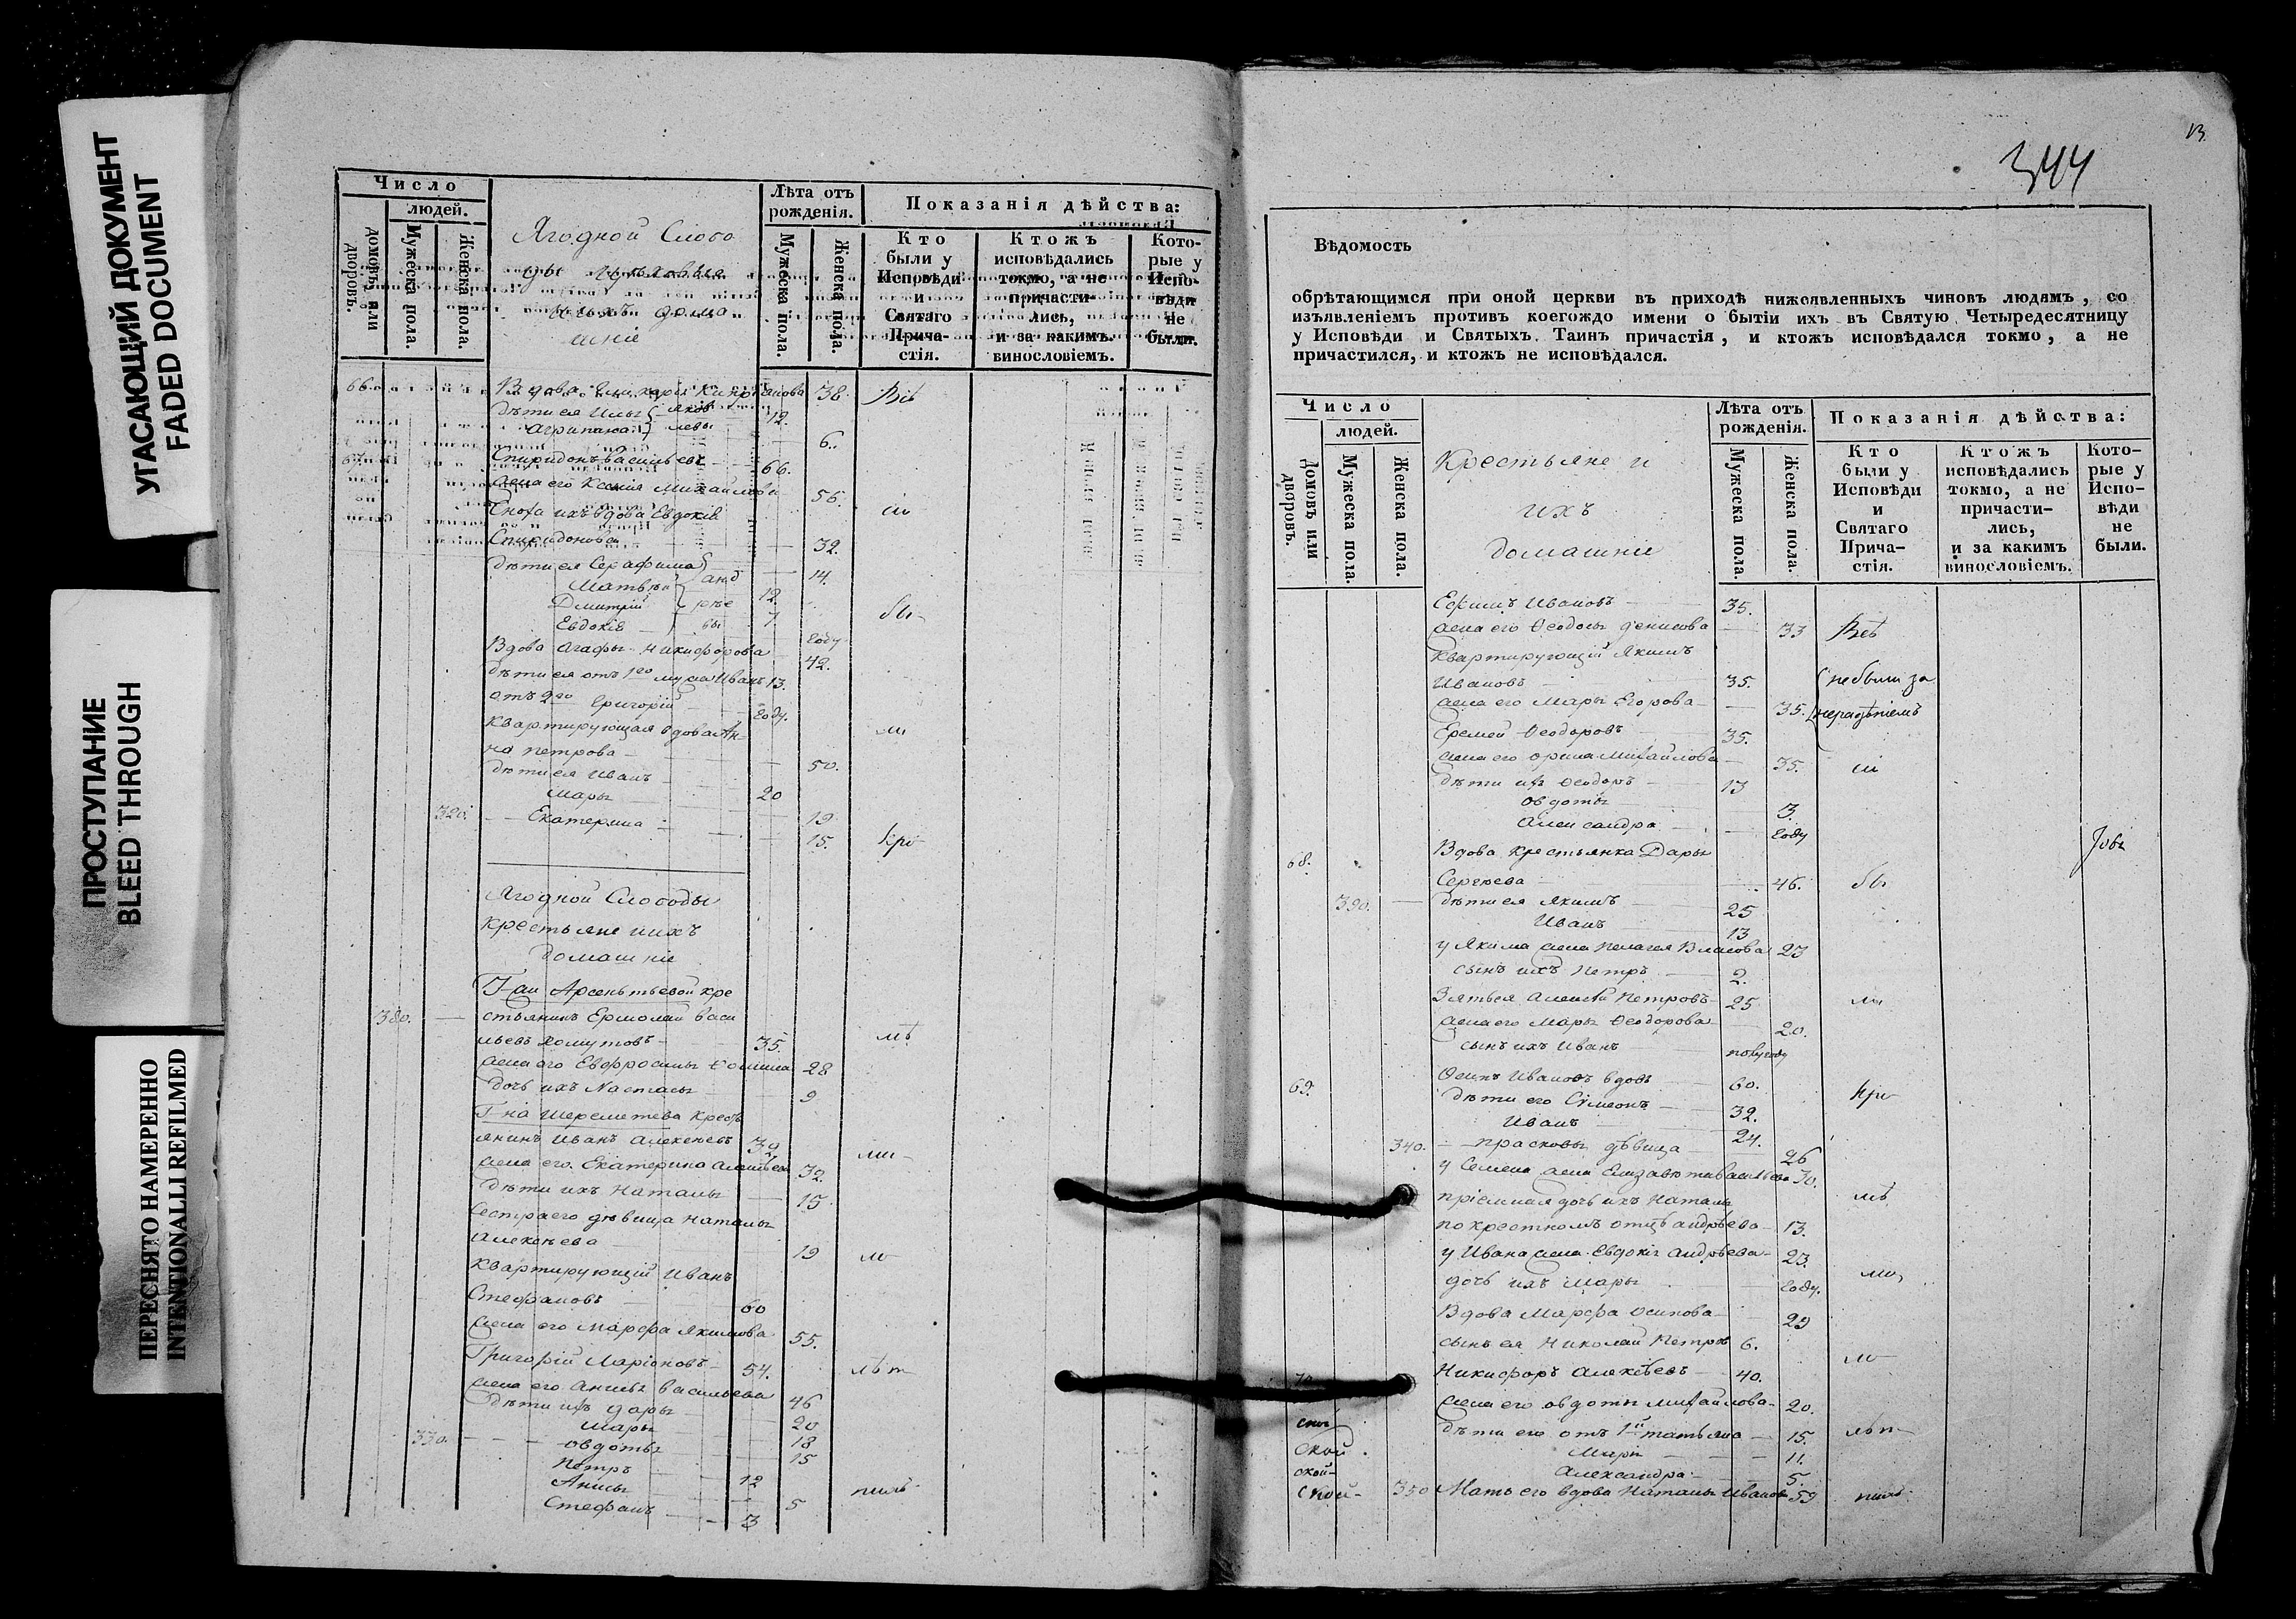 УГАСАЮЩИЙ ДОКУМЕНТ
FADED DOCUMENT
ПРОСТУПАНИЕ
BLEED THROUGH
ПЕРЕСНЯТО НАМЕРЕННО
INTENTIONALLI REFILMED
Число
людей.
домовъ или дворовъ.
Мужеска пола.
Женска пола.
Ягодной Слобо
домашніе
Лѣта отъ рожденія.
Мужеска пола.
Женска пола.
Показанія дѣйства:
Кто были у Исповѣди и Святаго Прича- стія.
Ктожъ исповѣдались токмо, а не причасти- лись, и за какимъ винословіемъ.
Кото- рые у Испо- вѣди не были.
66. Вдова 38. Всѣ
дѣти ея 12.
Агрипина 6.
67. Спиридонъ Васильевъ 66.
жена его Ксенія Михайлова 56.
Сноха ихъ вдова Евдокія
Спиридонова 32.
дѣти ея Серафима 14.
Матвѣй 12.
Дмитрій 7
Евдокія году
Вдова Агафья Никифорова 42.
дѣти ея отъ 1го мужа Иванъ 13.
отъ 2го Григорій году.
Квартирующая вдова Ан-
на Петрова 50.
дѣти ея Иванъ 20
Марья 19
320. Екатерина 15.
Ягодной Слободы
крестьяне и ихъ
домашніе
Г-жи Арсеньтьевой кре
380. стьянинъ Ермолай Васи
льевъ Хомутовъ 35.
жена его Евфросинья 28
дочь ихъ Настасья 9
Г-на Шереметева крест
янинъ Иванъ Алексѣевъ 32
жена его Екатерина 32.
дѣти ихъ Наталья 15
Сестра его дѣвица Наталья
Алексѣева 19
Квартирующій Иванъ
Стефановъ 60
жена его Марфа Якимова 55.
Григорій Ларіоновъ 54.
жена его Анисья Васильева 46
дѣти ихъ Дарья 20
Марья 18
330. Овдотья 15
Петръ 12
Анисья 5
Стефанъ 3
13
344
Вѣдомость
обрѣтающимся при оной церкви въ приходѣ нижеявленныхъ чиновъ людямъ, со
изъявленіемъ противъ коегождо имени о бытіи ихъ въ Святую Четыредесятницу
у Исповѣди и Святыхъ Таинъ причастія, и ктожъ исповѣдался токмо, а не
причастился, и ктожъ не исповѣдался.
Число
людей.
Домовъ или дворовъ.
Мужеска пола.
Женска пола.
Крестьяне и
ихъ
домашніе
Лѣта отъ рожденія.
Мужеска пола.
Женска пола.
Показанія дѣйства:
Кто были у Исповѣди и Святаго Прича- стія.
Ктожъ исповѣдались токмо, а не причасти- лись, и за какимъ винословіемъ.
Кото- рые у Испо- вѣди не были.
Ефимъ Ивановъ 35.
жена его Ѳеодосья Денисова 33 Всѣ
Квартирующій Якимъ
Ивановъ 35. не были за
жена его Марья Егорова 35. нерадѣніемъ
Еремей Ѳеодоровъ 35.
жена его Орина Михайлова 35.
дѣти ихъ Ѳеодоръ 13
Овдотья 3.
Александра году
68. Вдова крестьянка Дарья
Сергѣева 46.
390. дѣти ея Якимъ 25
Иванъ 13
у Якима жена Пелагея Власова 23
сынъ ихъ Петръ 2.
Зять ея Алексѣй Петровъ 25
жена его Марья Ѳеодорова 20.
сынъ ихъ Иванъ полугоду
69. Осипъ Ивановъ вдовъ 60.
дѣти его Сѵмеонъ 32.
Иванъ 24.
340. Прасковья дѣвица 26
у Семена жена Елизавета Васильева 30.
пріемная дочь ихъ Наталья
по крестномъ отцѣ Андрѣева 13.
у Ивана жена Евдокія Андрѣева 23.
дочь ихъ Марья году.
Вдова Марфа Осипова 29
сынъ ея Николай Петровъ 6.
70 Никифоръ Алексѣевъ 40.
жена его Овдотья Михайлова 20.
дѣти его отъ 1й Татьяна 15.
Марія 11.
Александра 5.
350 Мать его вдова Наталья Иванова 59